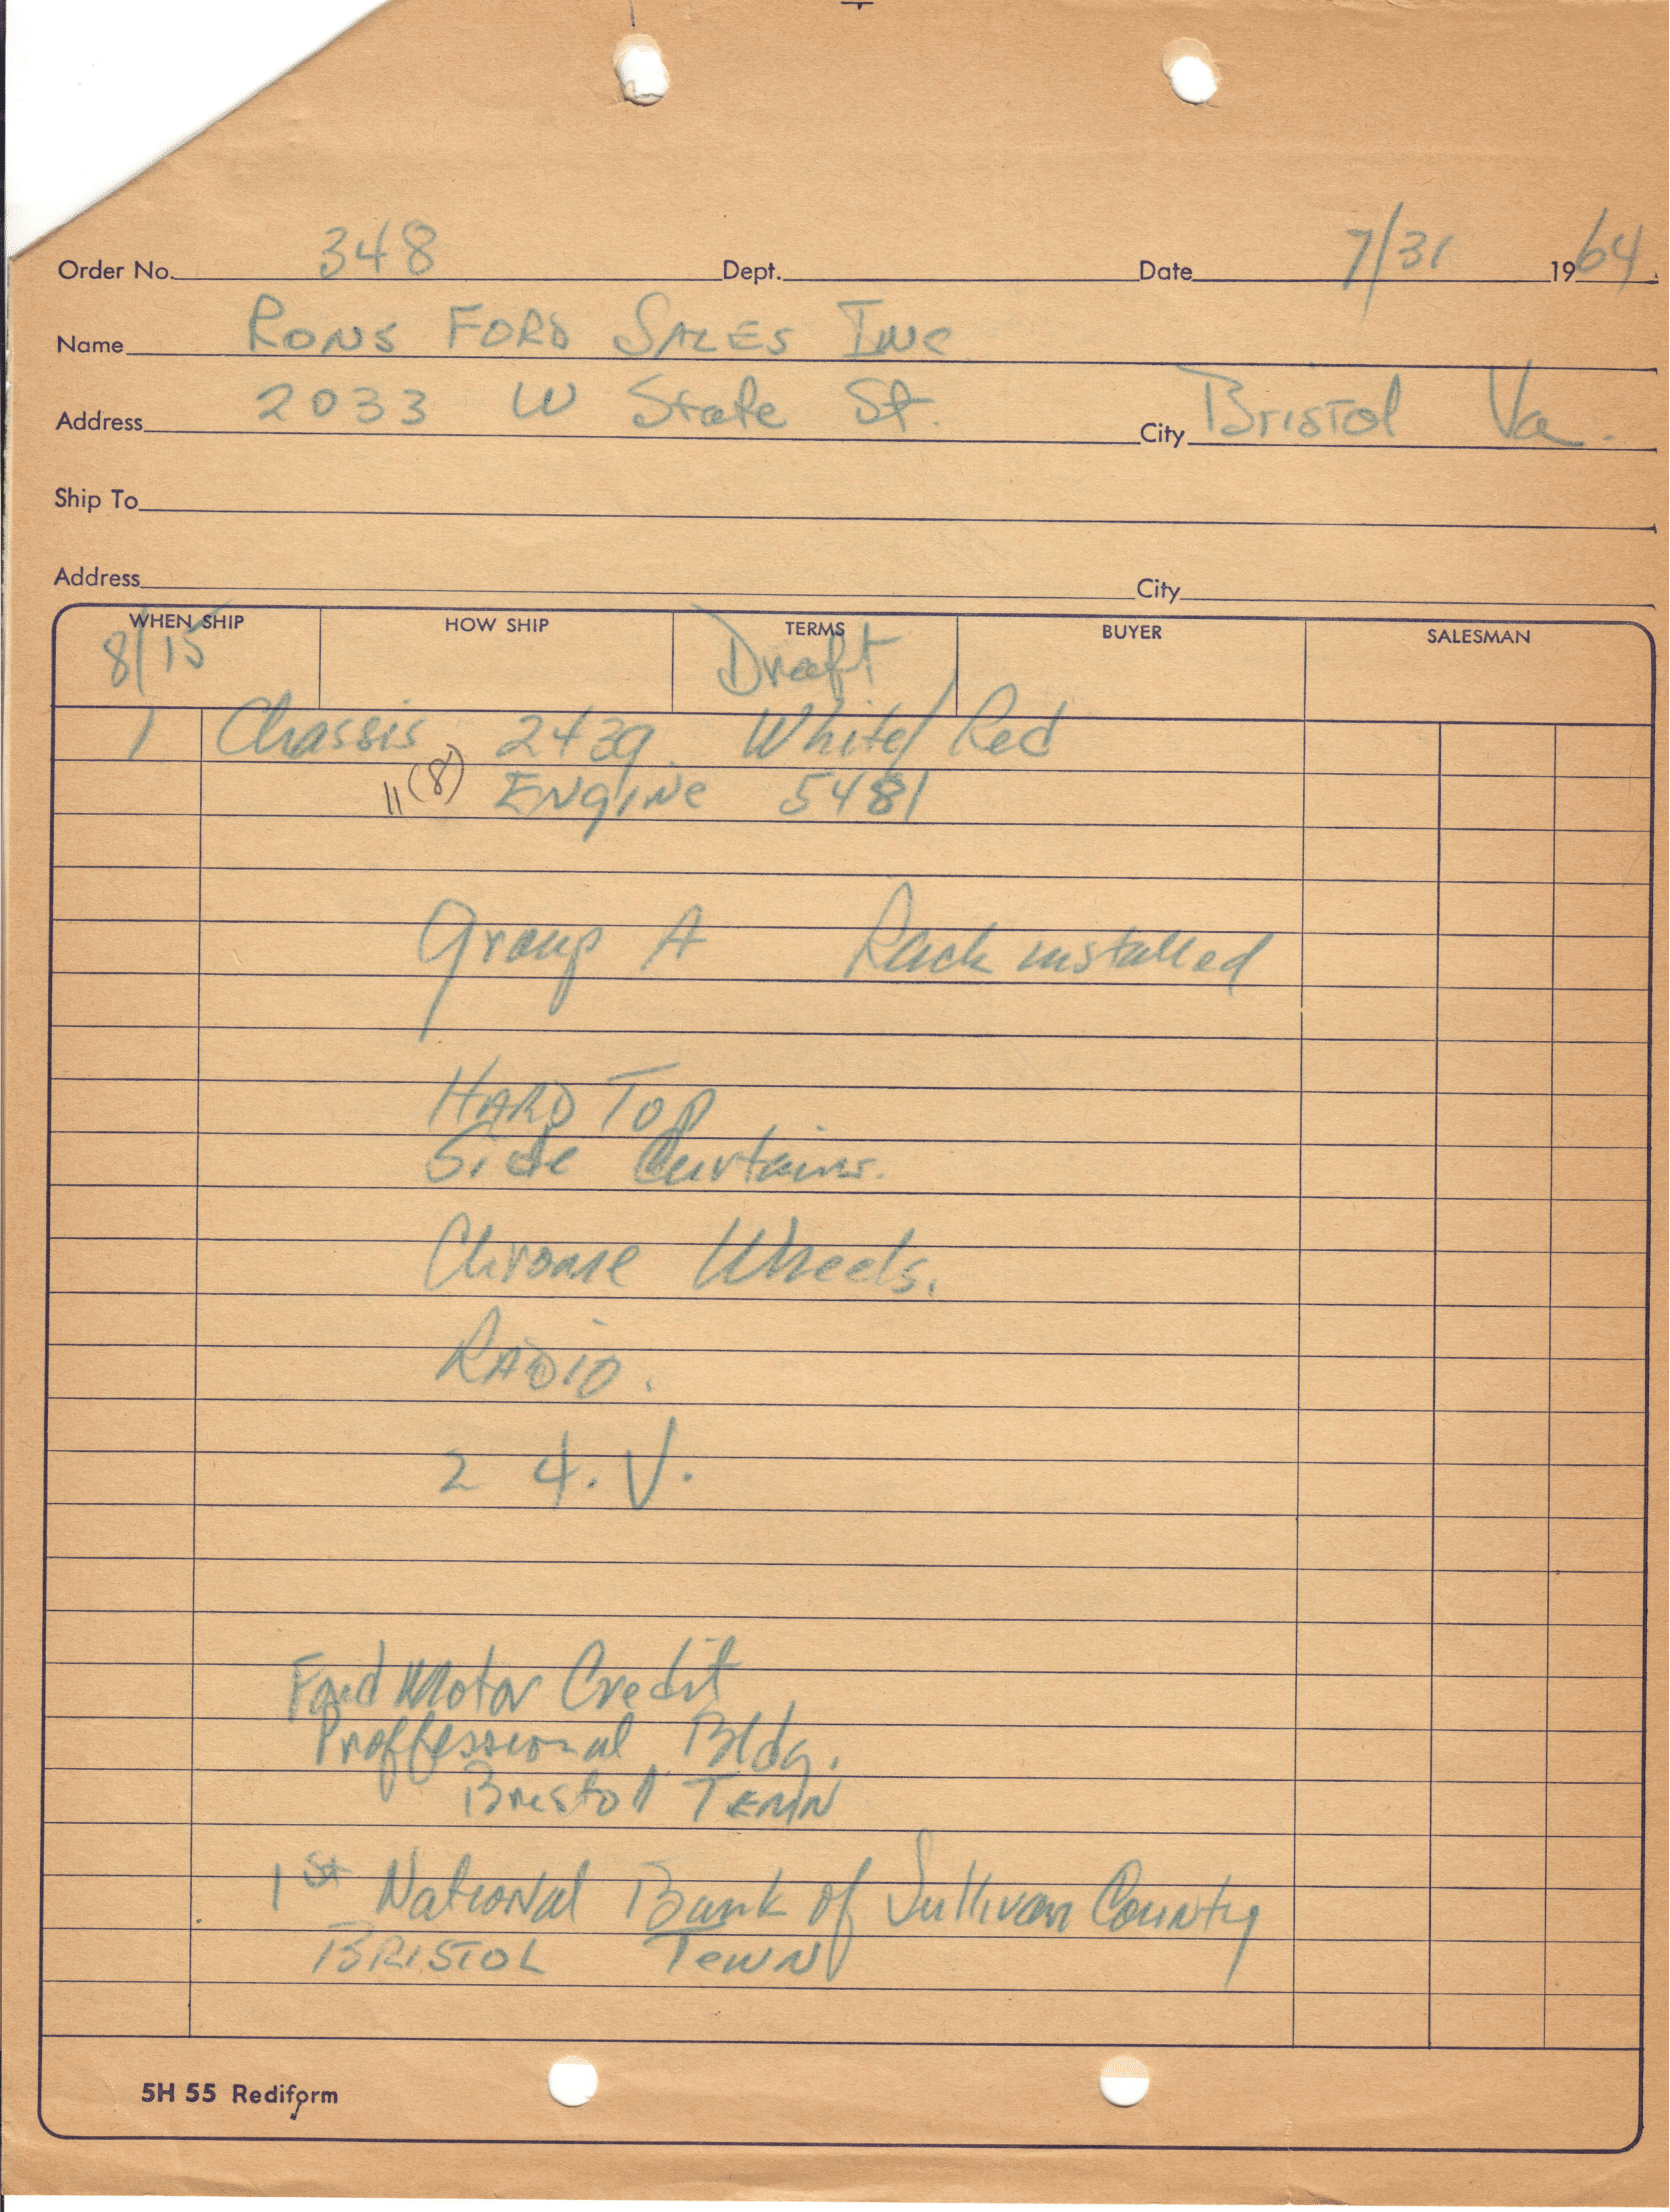 Order No. 348 Dept. Date 7/31 1964
Name RONS FORD SALES INC
Address 2033 W State St. City Bristol Va.
Ship To
Address City
WHEN SHIP HOW SHIP TERMS BUYER SALESMAN
8/15 Draft
1 Chassis 2439. White/Red
11(8) ENgiNe 5481
Group A Rack installed
HARD TOP
Side Curtains.
Chrome Wheels.
RADIO.
2 4.V.
Ford Motor Credit
Proffessional Bldg.
Bristol TENN
1st National Bank of Sullivan County
BRISTOL TeNN
5H 55 Rediform